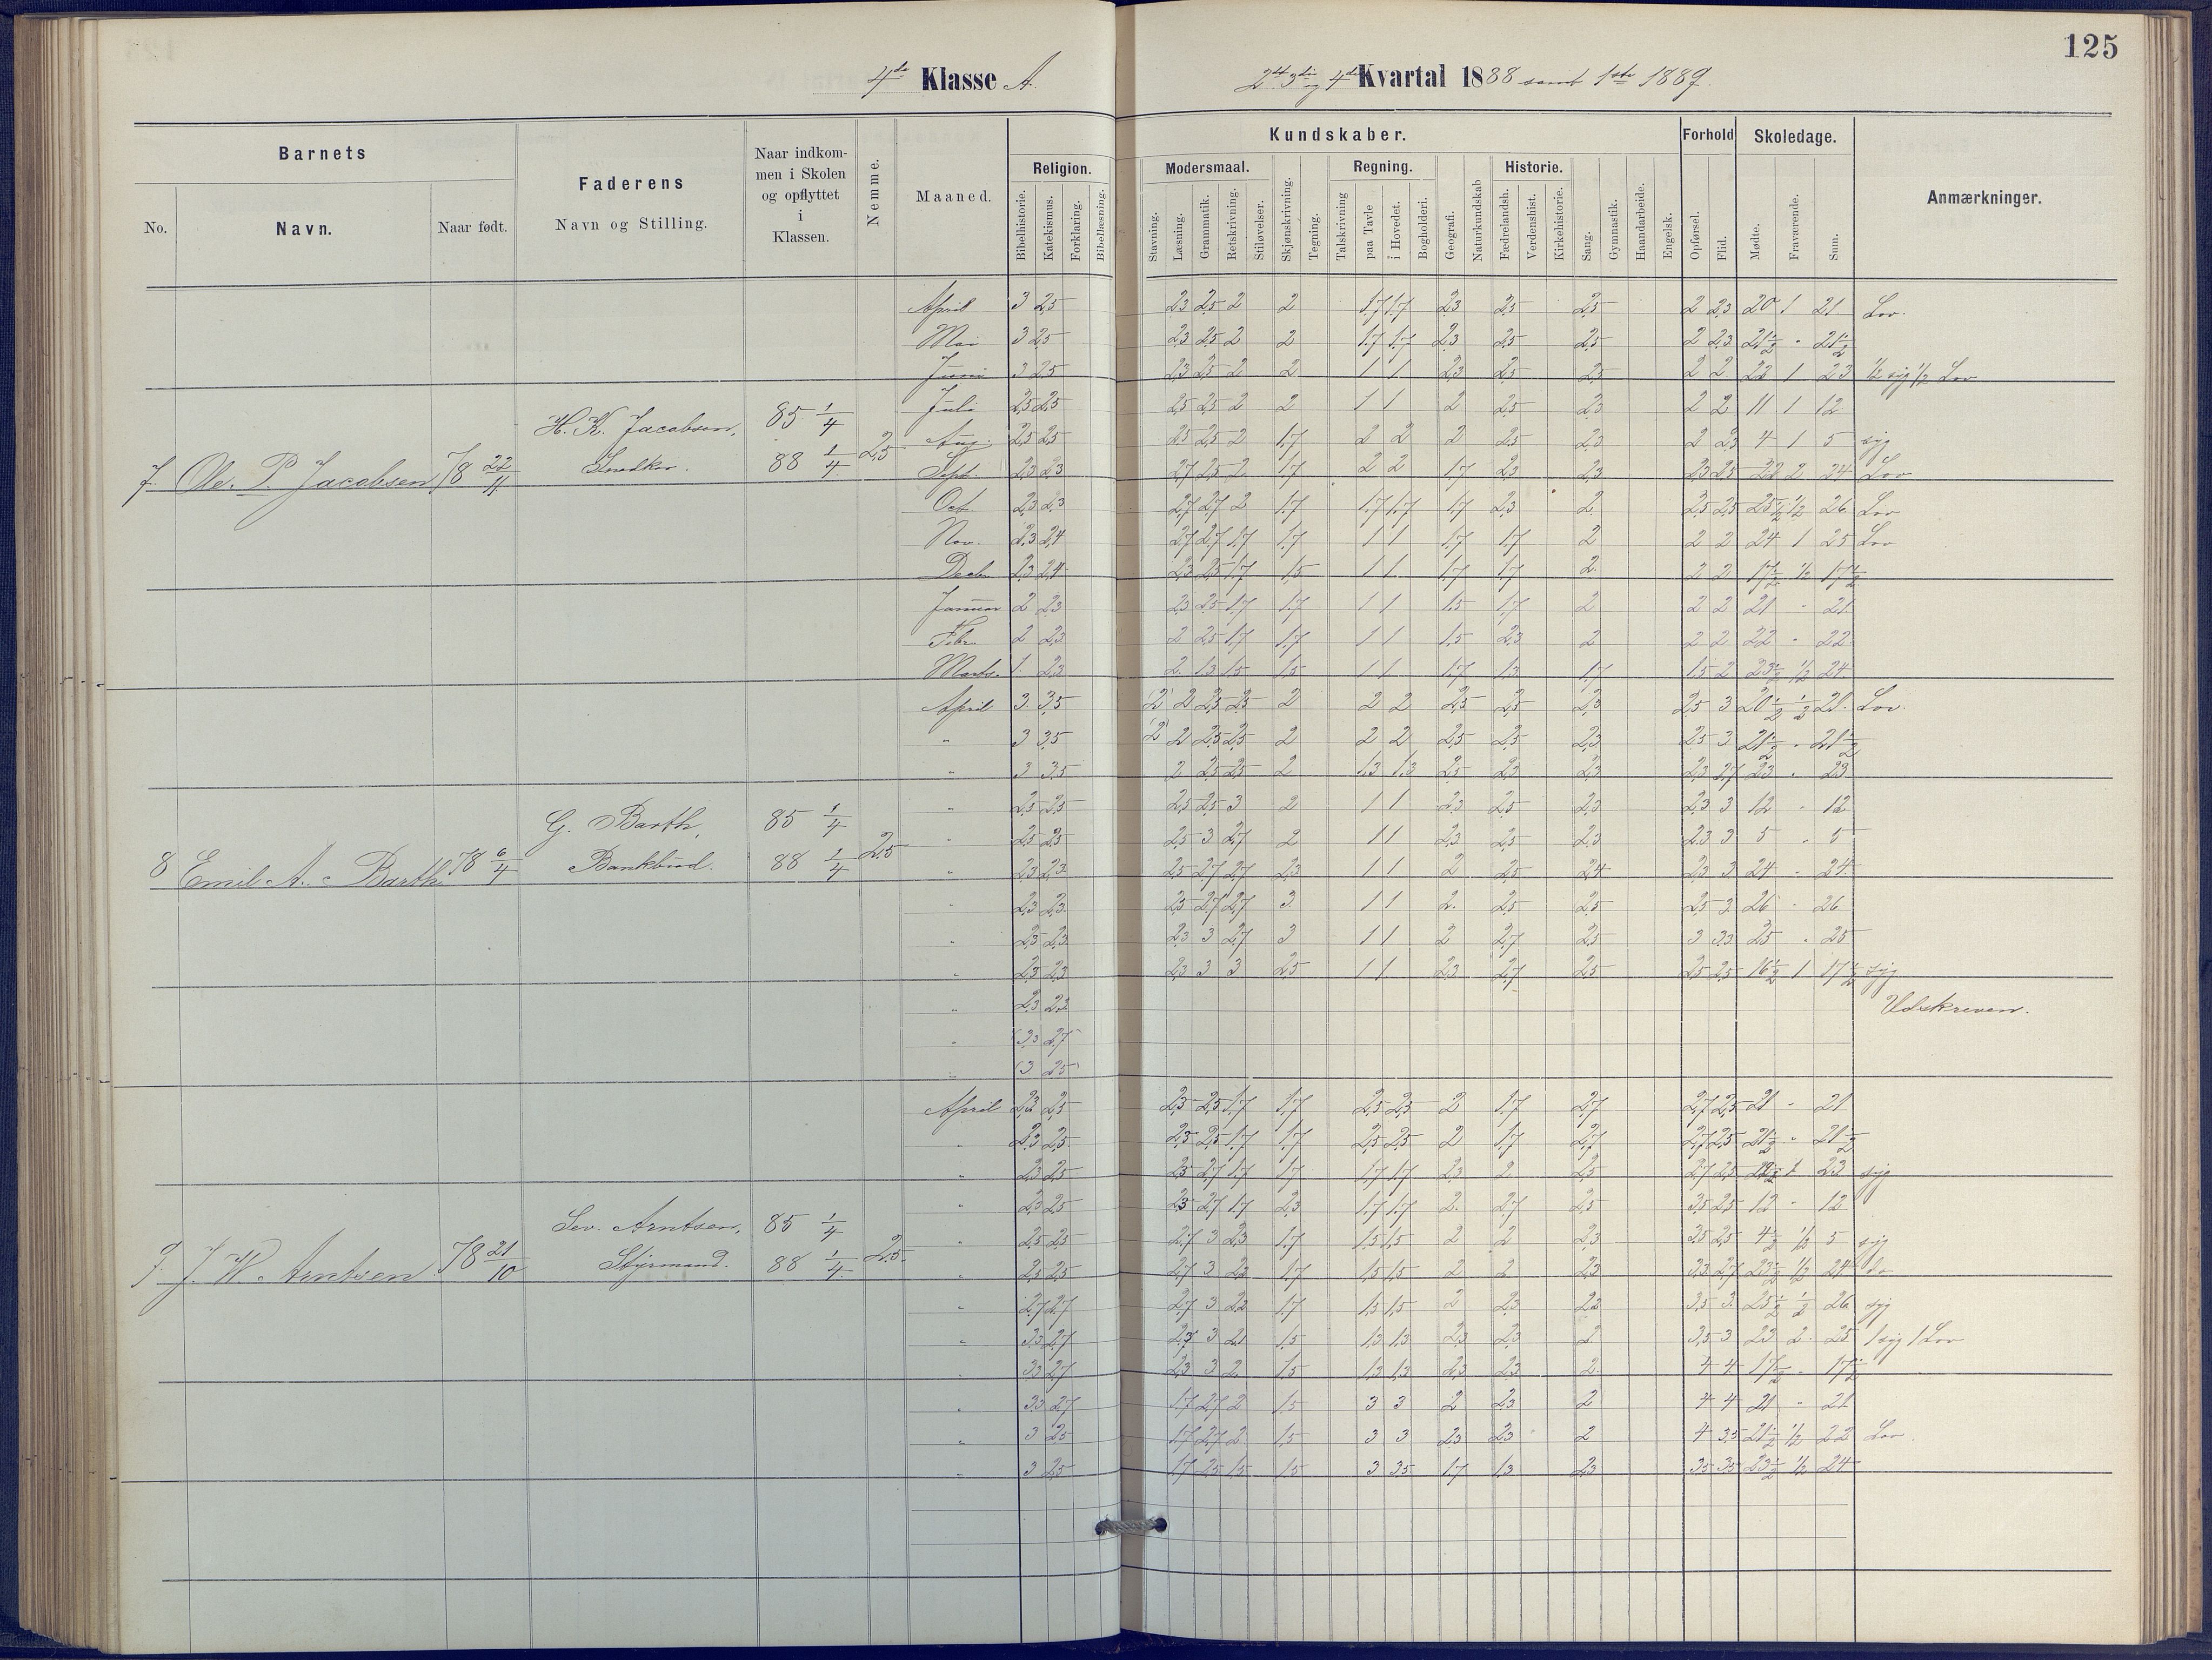 125
4de Klasse A.
2det 3die og 4de Kvartal 1888 samt 1ste 1889.
Barnets
Faderens
Navn og Stilling.
Naar indkom-
men i Skolen
og opflyttet
i
Klassen.
Nemme.
Maaned.
Kundskaber.
Forhold
Skoledage.
Anmærkninger.
No.
Navn.
Naar født.
Religion.
Modersmaal.
Regning.
Historie.
Bibelhistorie.
Katekismus.
Forklaring.
Bibellæsning.
Stavning.
Læsning.
Grammatik.
Retskrivning.
Stiløvelser.
Skjønskrivning.
Tegning.
Talskrivning
paa Tavle
i Hovedet.
Bogholderi.
Geografi.
Naturkundskab
Fædrelandsh.
Verdenshist.
Kirkehistorie.
Sang.
Gymnastik.
Haandarbeide.
Engelsk.
Opførsel.
Flid.
Mødte.
Fraværende.
Sum.
April 3 2,5 2,3 2,5 2 2 1.7 1.7 2,3 2,5 2,5 2 2,3 20 1 21 Lov.
Mai 3 2,5 2,3 2,5 2 2 1.7 1.7 2,3 2,5 2,5 2 2,3 21½ " 21½
Juni 3 2,5 2,3 2,5 2 2 1 1 2,3 2,5 2,5 2 2 22 1 23 ½ syg ½ Lov
Juli 2,5 2,5 2,5 2,5 2 2 1 1 2 2,5 2,3 2 2 11 1 12
Aug. 2,5 2,5 2,5 2,5 2 1.7 2 2 2 2,5 2,3 2 2,3 4 1 5 syg
7. Ole. P. Jacobsen 78 22/11 H. K. Jacobsen, Snedker. 85 1/4 88 1/4 2,5
Sept. 2,3 2,3 2,7 2,5 2 1.7 2 2 1.7 2,3 2,3 2,3 2,5 22 2 24 Lov
Oct. 2,3 2,3 2,7 2,7 2 1.7 1.7 1.7 1.7 2,3 2 2,5 2,5 25½ ½ 26 Lov
Nov. 2,3 2,4 2,7 2,7 1.7 1.7 1 1 1.7 1.7 2 2 2 24 1 25 Lov
Decbr. 2,3 2,4 2,3 2,5 1.7 1,5 1 1 1.7 1.7 2 2 2 17½ ½ 17½
Januar 2 2,3 2,3 2,5 1.7 1.7 1 1 1.5 1.7 2 2 2 21 " 21
Febr. 2 2,3 2 2,5 1.7 1.7 1 1 1.5 2,3 2 2 2 22 " 22
Marts. 1. 2,3 2. 1.3 1.5 1.5 1 1 1.7 1.3 1.7 1.5 2 23½ ½ 24
April 3. 3,5 2 2,5 2,5 2 2 2 2,5 2,5 2,3 2,5 3 20½ ½ 21 Lov.
" 3 3,5 2 2 2,5 2,5 2 2 2 2,5 2,5 2,3 2,5 3 21½ " 21½
" 3 3,5 2 2,5 2,5 2 1.3 1.3 2,5 2,3 2,3 2,3 2,7 23 " 23
" 2,5 2,5 2,5 2,5 3 2 1 1 2,3 2,5 2,3 2,3 3 12 " 12
" 2,5 2,5 2,5 3 2,7 2 1 1 2,3 2,5 2,3 2,3 3 5 " 5
8 Emil A. Barth 78 6/4 G. Barth, Bankbud. 85 1/4 88 1/4 2,5
" 2,3 2,3 2,5 2,7 2,7 2,3 1 1 2 2,5 2,4 2,3 3 24 " 24
" 2,3 2,3 2,5 2,7 2,7 3 1 1 2. 2,5 2,5 2,5 3 26 " 26
" 2,5 2,3 2,3 3 2,7 3 1 1 2 2,7 2,5 3 3,3 25 " 25
" 2,5 2,3 2,3 3 3 2,5 1 1 2,3 2,7 2,5 2,5 2,5 16½ 1 17½ syg
" 2,3 2,2 Udskreven.
" 3,3 2,7
" 3 2,5
April 2,3 2,5 2,5 2,5 1.7 1.7 2,5 2,5 2 1.7 2,7 2,7 2,5 21 " 21
" 2,3 2,5 2,5 2,5 1.7 1.7 2,5 2,5 2 1.7 2,7 2,7 2,5 21½ " 21½
" 2,3 2,5 2,5 2,7 1.7 1.7 1.7 1.7 2,3 2 2,5 2,7 2,5 22 1 23 syg
" 2,3 2,5 2,3 2,7 1.7 2,3 1.7 1.7 2. 2,7 2,5 3,5 2,5 12 " 12
" 2,5 2,5 2,7 3 2,3 1.7 1.5 1.5 2 2 2,3 3,5 2,5 4½ ½ 5 syg
9. J. W. Arntsen 78 21/10 Sev. Arntsen, Styrmand. 85 1/4 88 1/4 2,5
" 2,5 2,5 2,7 3 2,2 1.7 1.5 1.5 2 2 2,3 3,3 2,7 23½ ½ 24 do
" 2,7 2,7 2,7 3 2,2 1.7 1.5 1.5 2 2,3 2,2 3,5 3 25½ ½ 26 syg
" 3,3 2,7 2,3 3 2,1 1.5 1.3 1.3 2,3 2,3 2 3,5 3 23 2 25 1 syg 1 Lov
" 3,3 2,7 2,3 3 2. 1.5 1.3 1.3 2,3 2,3 2. 4 4 17½ " 17½
" 3,3 2,7 1.7 2,7 2 1.5 3 3 2 2,3 2 4 4 21 " 21
" 3 2,5 1.7 2,7 2 1.5 3 3 2,3 2,3 2 4 3,5 21½ ½ 22 Lov.
" 3 2,5 1.7 2,5 1.5 1.5 3 3,5 1.7 1.3 2,3 3,5 3,5 23½ ½ 24